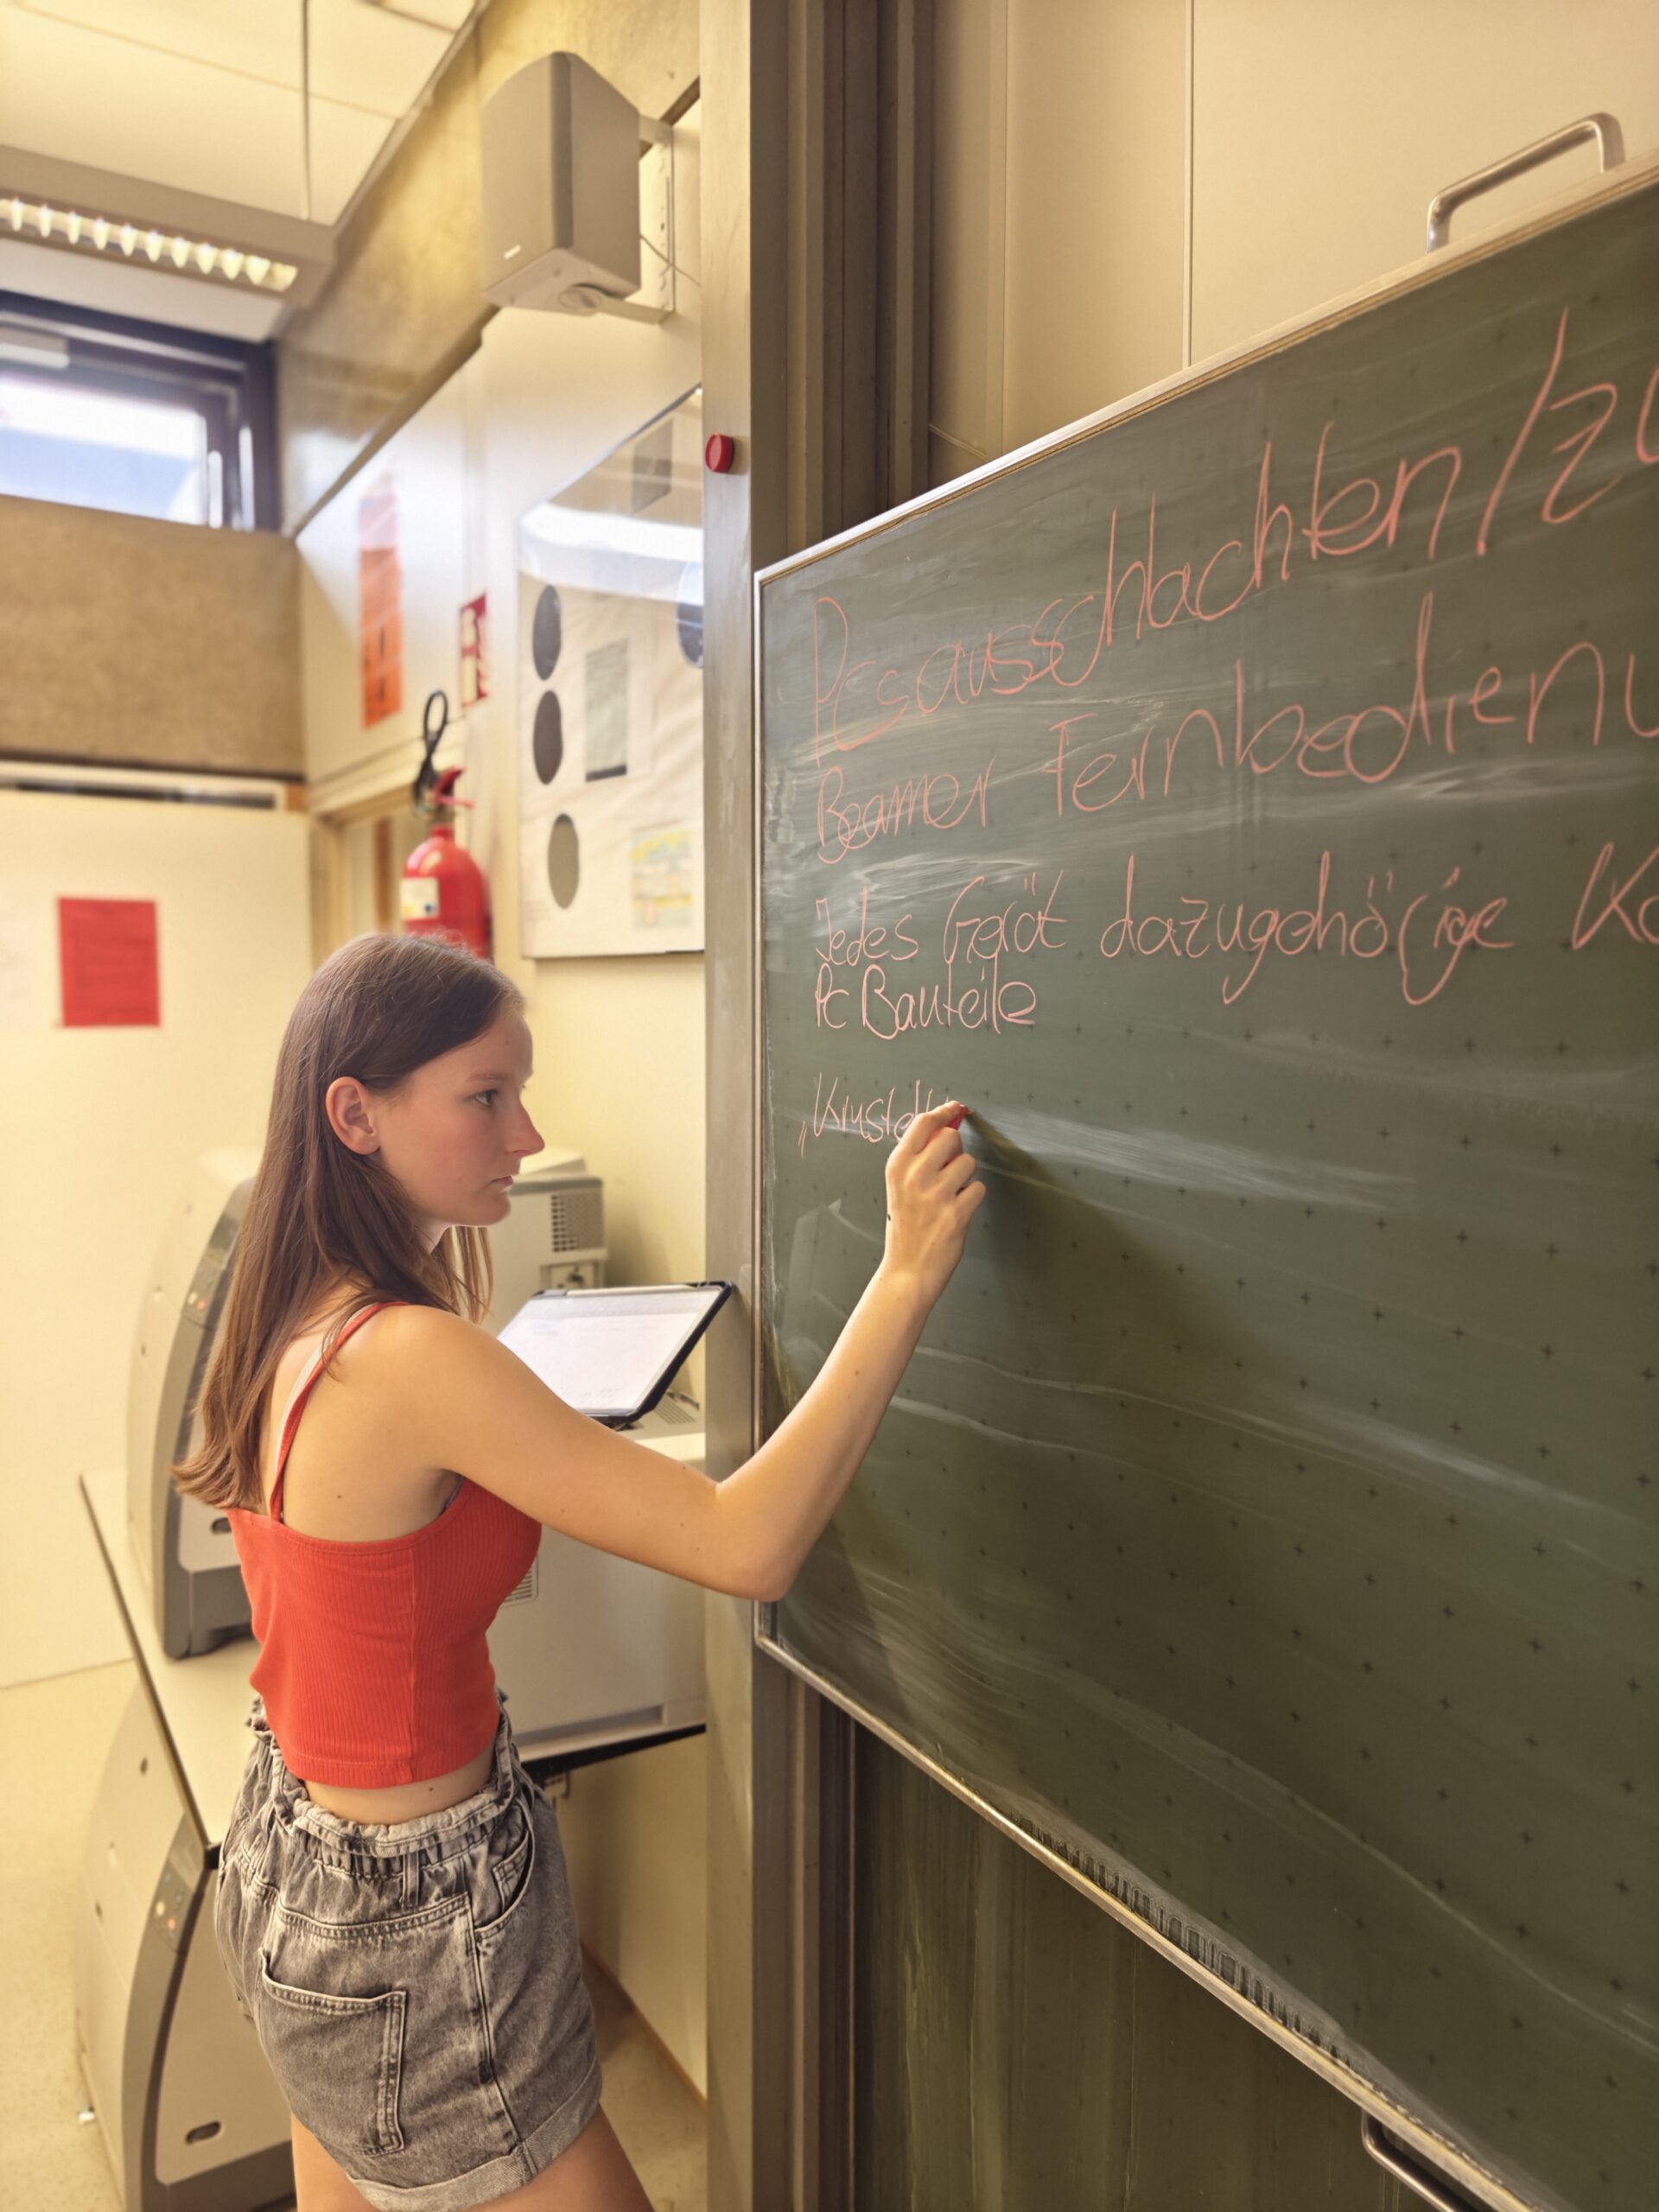 Pcs ausschlachten/zu
Beamer Fernbedienu
Jedes Gerät dazugehörige Ka
Pc Bauteile